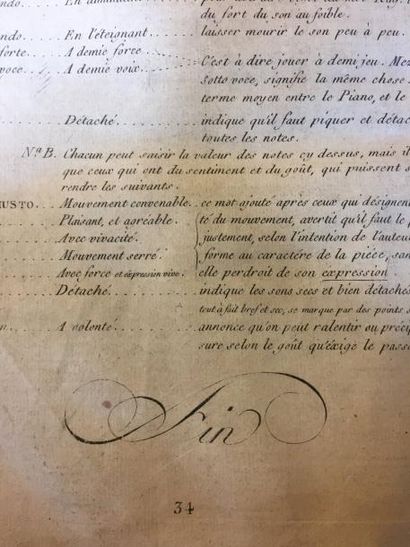 du fort du son au foible.
ndo ... En l'éteignant ... laisser mourir le son peu à peu.
forte ... A demie force ...
voce ... A demie voix ... C'est à dire jouer à demi jeu. Mez
sotto voce, signifie la même chose
terme moyen entre le Piano, et le
Détaché ... indique qu'il faut piquer et détac
toutes les notes.
Nª B. Chacun peut saisir la valeur des notes cy dessus, mais il
que ceux qui ont du sentiment et du goût, qui puissent s
rendre les suivants.
USTO ... Mouvement convenable. ce mot ajouté après ceux qui désignent
Plaisant, et agréable. té du mouvement, avertit qu'il faut le p
Avec vivacité ... justement, selon l'intention de l'auteur
Mouvement serré ... forme au caractère de la pièce, san
Avec force et expression vive. elle perdroit de son expression
Détaché ... indique les sons secs et bien détachés
tout à fait bref et sec, se marque par des points s
n ... A volonté ... annonce qu'on peut ralentir ou préci
sure selon le goût qu'éxige le passe
Fin
34